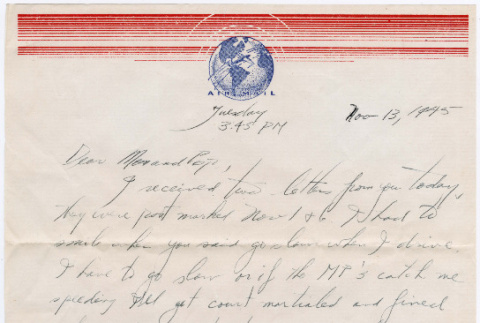 AIR MAIL
Tuesday
3:45 PM
Nov 13, 1945
Dear Mom and Pop,
I received two letters from you today,
they were post marked Nov 1 & 6. I had to
smile when you said go slow when I drive.
I have to go slow or if the MP's catch me
speeding I'll get court martialed and fined